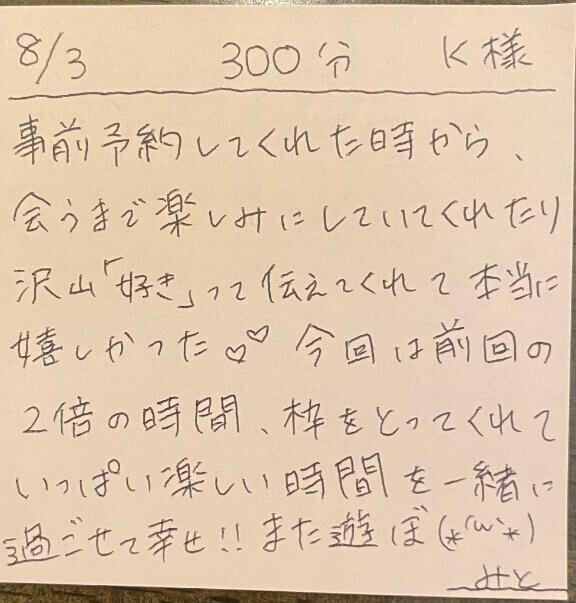 8/3 300分 K様
事前予約してくれた時から、
会うまで楽しみにしていてくれたり
沢山「好き」って伝えてくれて本当に
嬉しかった♡♡ 今回は前回の
2倍の時間、枠をとってくれて
いっぱい楽しい時間を一緒に
過ごせて幸せ!! また遊ぼ(*´ω`*)
みと